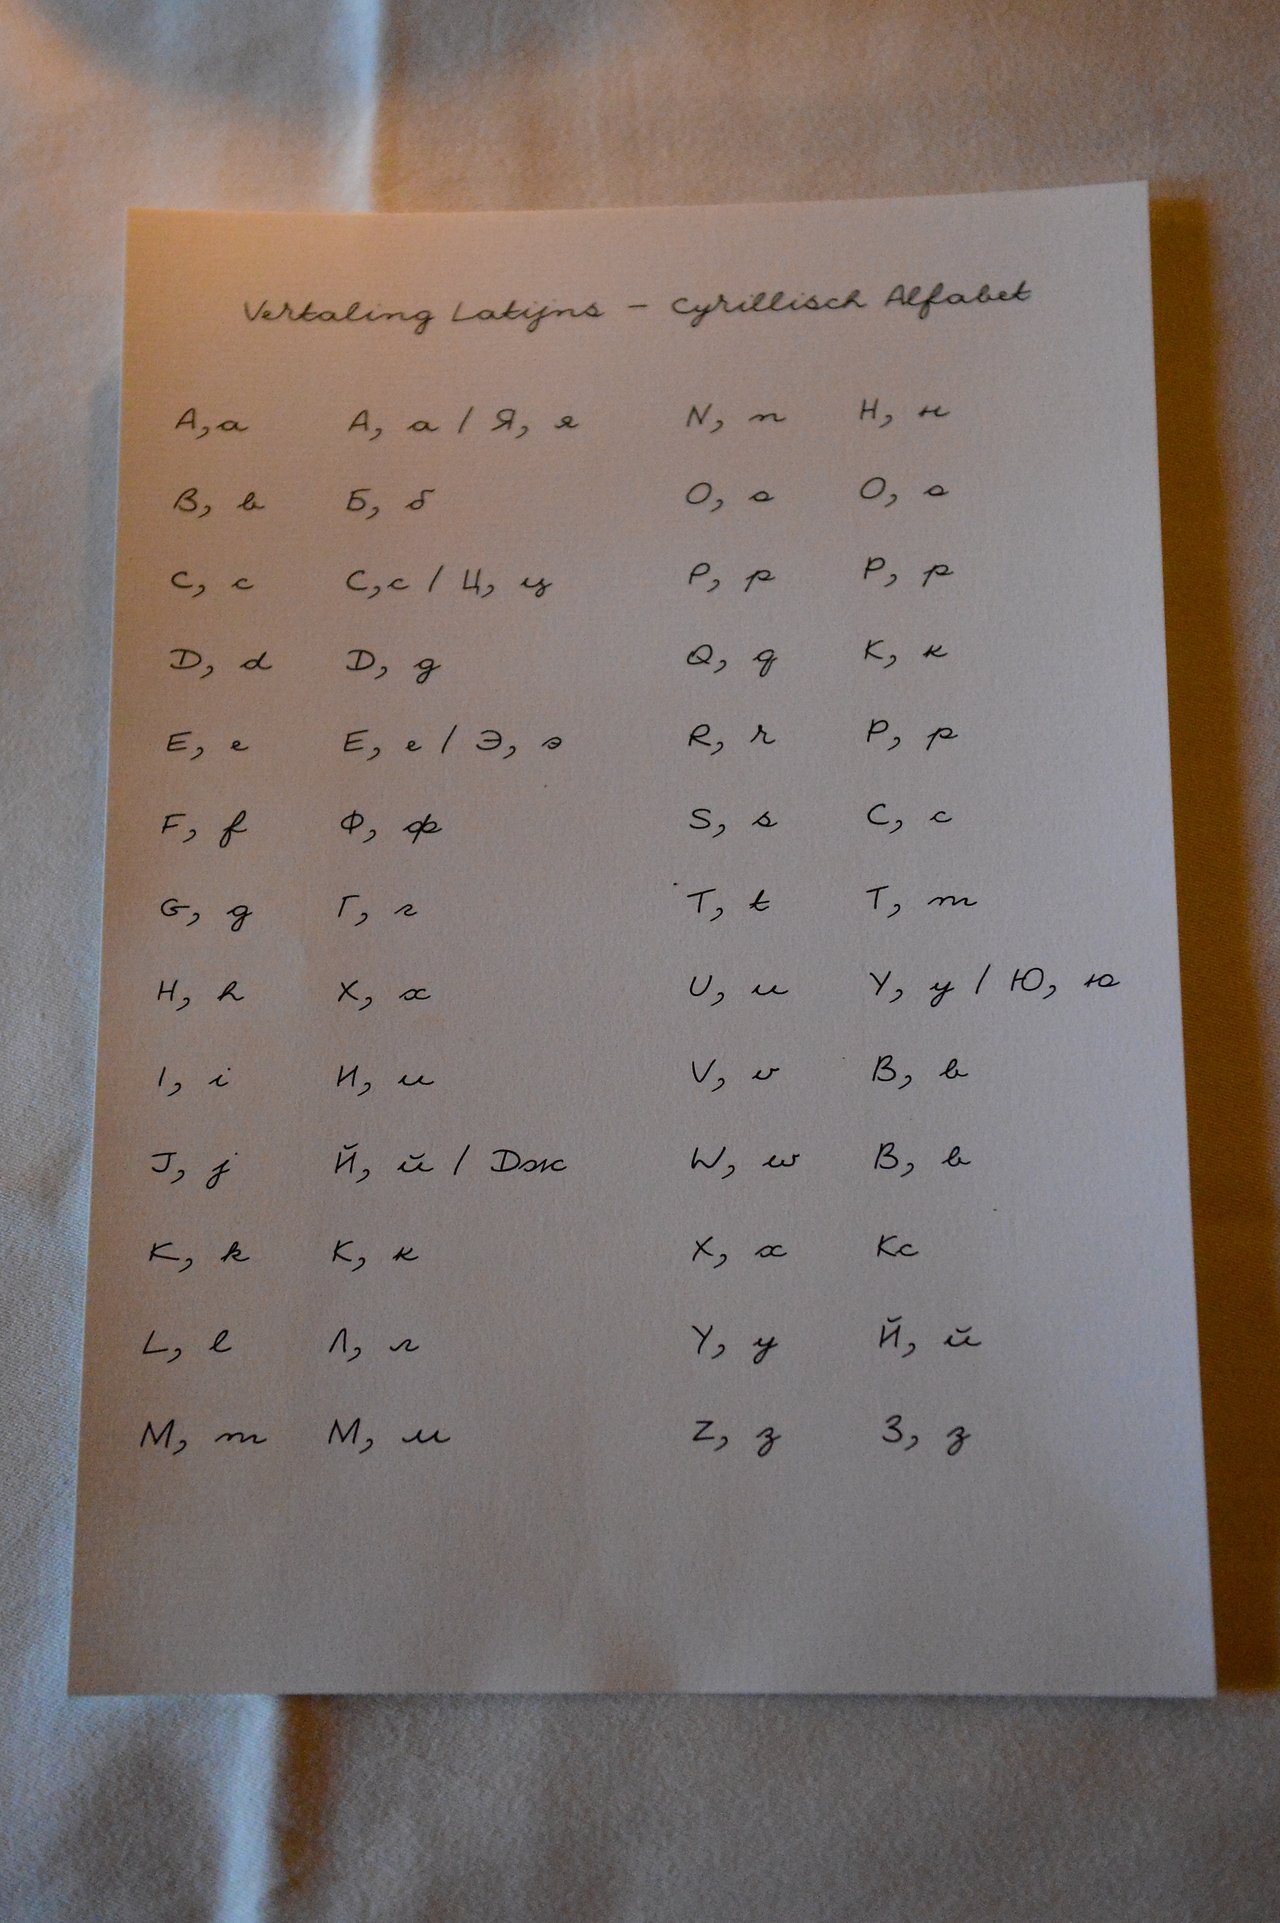 Vertaling Latijns - Cyrillisch Alfabet
A, a А, а / Я, я
B, b Б, б
C, c С, с / Ц, ц
D, d D, g
E, e Е, е / Э, э
F, f Ф, ф
G, g Г, г
H, h Х, х
I, i И, и
J, j Й, й / Dж
K, k К, к
L, l Л, л
M, m М, м
N, n Н, н
O, o О, о
P, p Р, р
Q, q К, к
R, r Р, р
S, s С, с
T, t Т, т
U, u У, у / Ю, ю
V, v В, в
W, w В, в
X, x Кс
Y, y Й, й
Z, z З, з